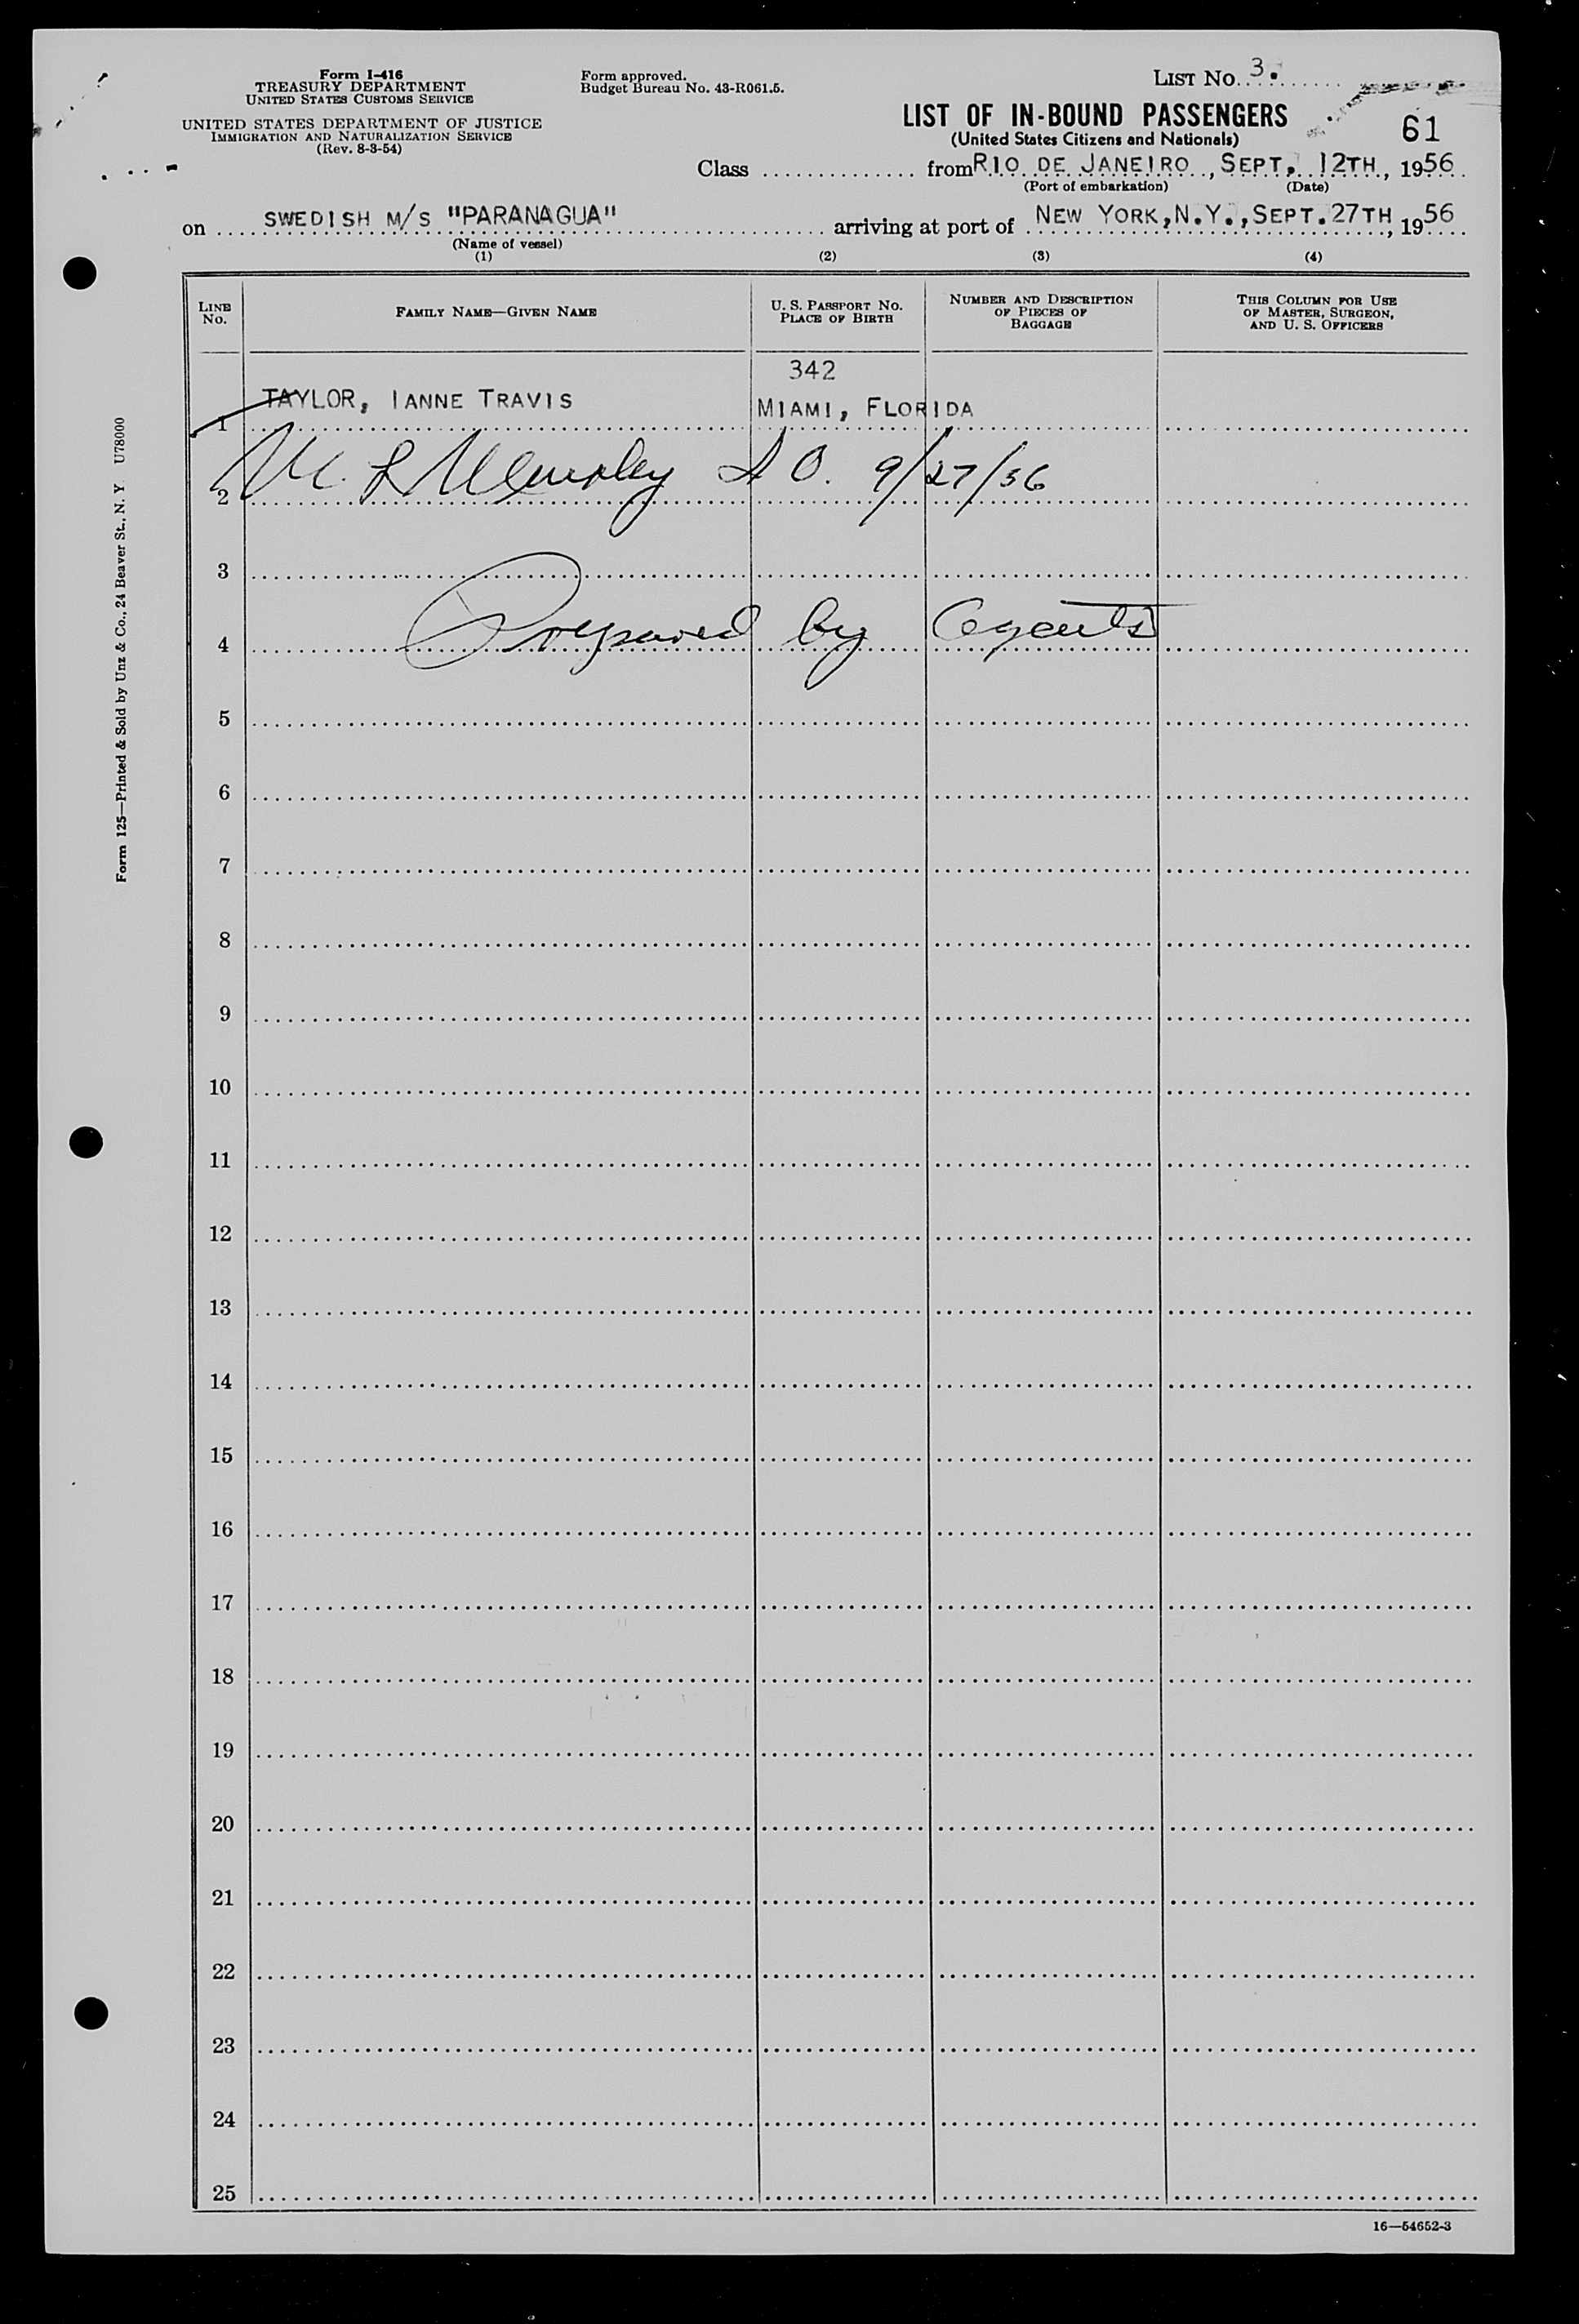 Form I-416
TREASURY DEPARTMENT
UNITED STATES CUSTOMS SERVICE
UNITED STATES DEPARTMENT OF JUSTICE
IMMIGRATION AND NATURALIZATION SERVICE
(Rev. 8-3-54)
Form approved.
Budget Bureau No. 43-R061.5.
LIST NO. 3.
LIST OF IN-BOUND PASSENGERS
61
(United States Citizens and Nationals)
Class from RIO DE JANEIRO, SEPT. 12TH, 1956
(Port of embarkation) (Date)
on SWEDISH M/S "PARANAGUA" arriving at port of NEW YORK, N.Y., SEPT. 27TH, 1956
(Name of vessel)
(1) (2) (3) (4)
LINE NO.
FAMILY NAME—GIVEN NAME
U. S. PASSPORT NO.
PLACE OF BIRTH
NUMBER AND DESCRIPTION
OF PIECES OF
BAGGAGE
THIS COLUMN FOR USE
OF MASTER, SURGEON,
AND U. S. OFFICERS
342
1 TAYLOR, IANNE TRAVIS MIAMI, FLORIDA
2 9/27/56
3
4 Prepared by Agents
5
6
7
8
9
10
11
12
13
14
15
16
17
18
19
20
21
22
23
24
25
16—54652-3
Form 125—Printed & Sold by Unz & Co., 24 Beaver St., N. Y U78000